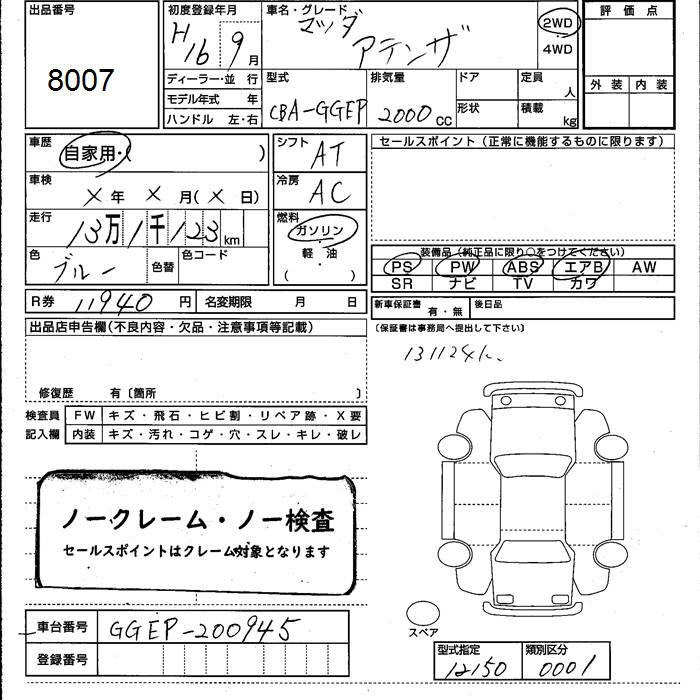 出品番号
8007
初度登録年月
H16 9月
車名・グレード
マツダ
アテンザ
2WD
4WD
評価点
外装 内装
ディーラー・並行
モデル年式 年
ハンドル 左・右
型式
CBA-GGEP
排気量
2000cc
ドア
形状
定員
人
積載
kg
車歴
自家用・( )
シフト
AT
セールスポイント(正常に機能するものに限ります)
車検
X年 X月(X日)
冷房
AC
走行
13万1千123km
燃料
ガソリン
軽・油
( )
色
ブルー
色替
色コード
装備品(純正品に限り○をつけてください)
PS PW ABS エアB AW
SR ナビ TV カワ
R券 11940円
名変期限 月 日
新車保証書 有・無
後日品
〔保証書は事務局へ提出して下さい〕
出品店申告欄(不良内容・欠品・注意事項等記載)
131124k
修復歴 有〔箇所 〕
検査員 FW キズ・飛石・ヒビ割・リペア跡・X要
記入欄 内装 キズ・汚れ・コゲ・穴・スレ・キレ・破レ
ノークレーム・ノー検査
セールスポイントはクレーム対象となります
スペア
車台番号 GGEP-200945
登録番号
型式指定
12150
類別区分
0001